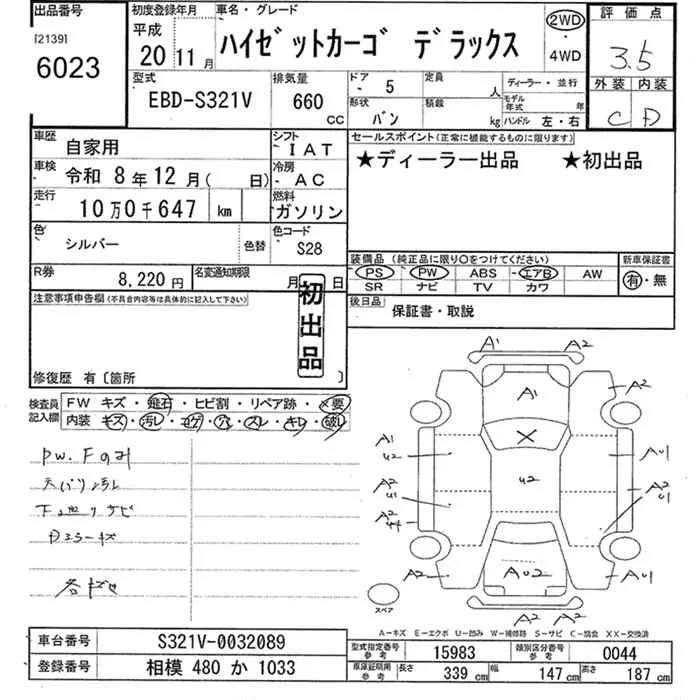 出品番号
[2139]
6023
初度登録年月
平成
20年 11月
車名・グレード
ハイゼットカーゴ デラックス
2WD
・
4WD
評価点
3.5
外装 内装
C D
型式
EBD-S321V
排気量
660
CC
ドア
5
形状
バン
定員
人
積載
kg
ディーラー・並行
モデル年式 年
ハンドル 左・右
車歴
自家用
シフト
IAT
車検
令和 8年12月( 日)
冷房
AC
走行
10万0千647 km
燃料
ガソリン
色
シルバー
色替
色コード
S28
R券
8,220円
名変通知期限
月 日
セールスポイント(正常に機能するものに限ります)
★ディーラー出品 ★初出品
装備品(純正品に限り○をつけてください)
PS PW ABS エアB AW
SR ナビ TV カワ
新車保証書
有・無
後日品
保証書・取説
注意事項申告欄(不具合内容等は具体的に記入して下さい)
初出品
修復歴 有〔箇所 〕
検査員記入欄
FW キズ・飛石・ヒビ割・リペア跡・×要
内装 キズ・汚レ・コゲ・穴・スレ・キレ・破レ
PW.Fのみ
天バリ汚れ
下廻りサビ
Dミラーキズ
A1 A2
A1
A2 A2
A1 A01
U2
U2
A2 A2
U1 U1
A2
A2 A02 A01
A2 A2
スペア
A-キズ E-エクボ U-凹み W-補修跡 S-サビ C-腐食 XX-交換済
車台番号
S321V-0032089
登録番号
相模 480 か 1033
型式指定番号
参考
15983
類別区分番号
参考
0044
車庫証明用
参考
長さ 339 cm 幅 147 cm 高さ 187 cm